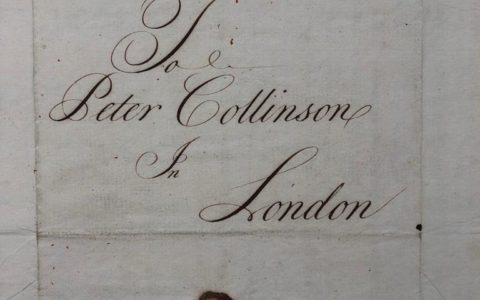 To
Peter Collinson
In
London